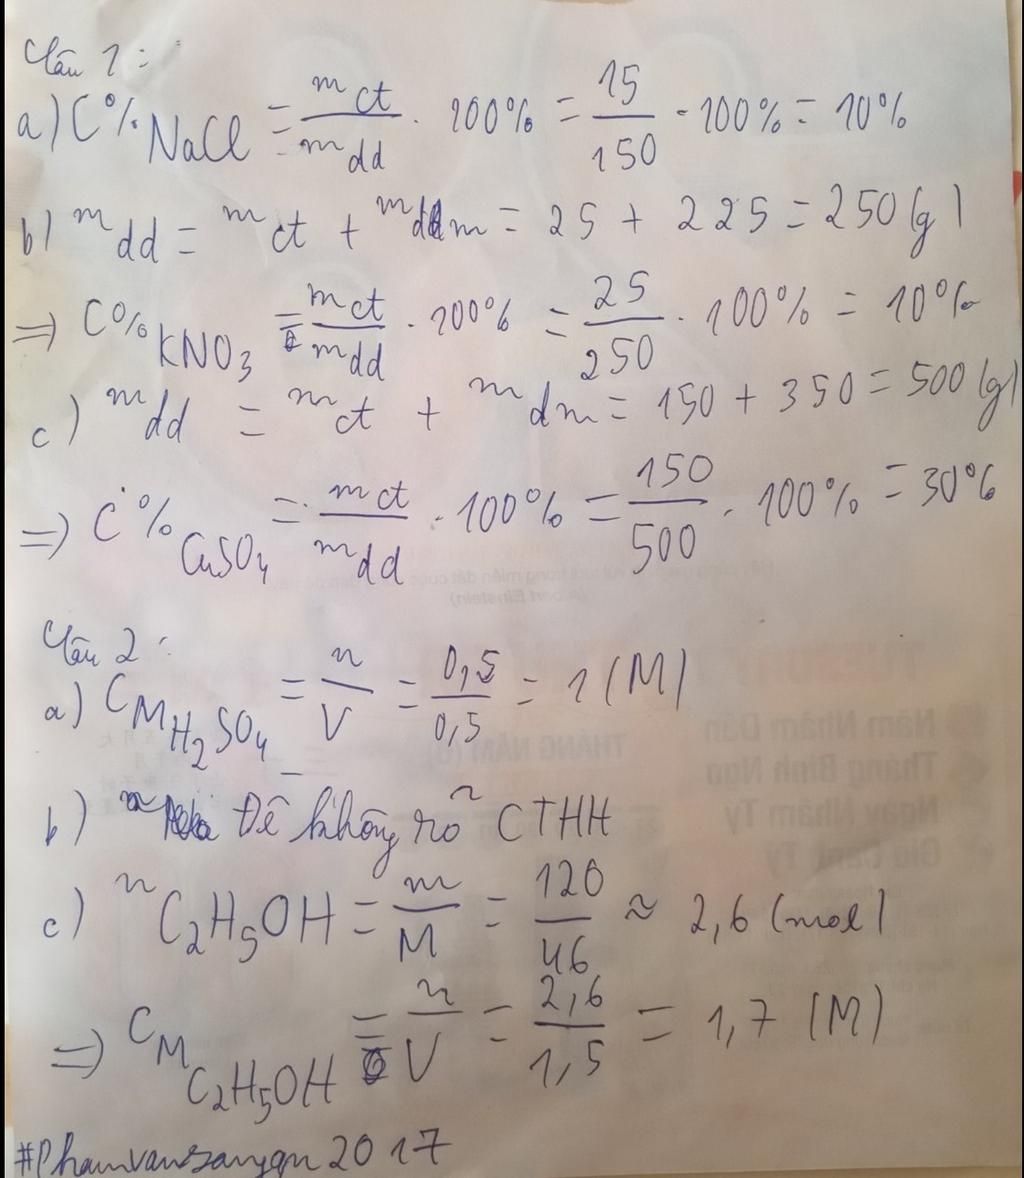 Câu 1:
a) C%NaCl = mct/mdd . 100% = 15/150 . 100% = 10%
b) mdd = mct + mdm = 25 + 225 = 250 (g)
=> C%KNO3 = mct/mdd . 100% = 25/250 . 100% = 10%
c) mdd = mct + mdm = 150 + 350 = 500 (g)
=> C%CuSO4 = mct/mdd . 100% = 150/500 . 100% = 30%
Câu 2:
a) CM H2SO4 = n/V = 0,5/0,5 = 1 (M)
b) Đề không rõ CTHH
c) nC2H5OH = m/M = 120/46 ≈ 2,6 (mol)
=> CM C2H5OH = n/V = 2,6/1,5 = 1,7 (M)
#Phamvansangqn2017